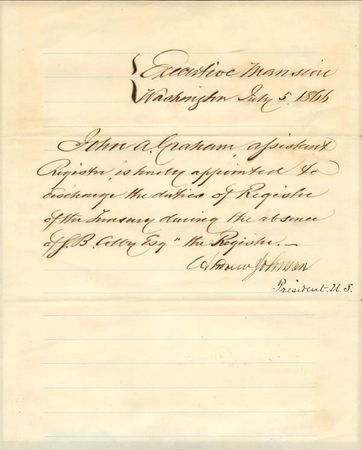 Executive Mansion
Washington July 5. 1866
John A. Graham assistant
Register is hereby appointed to
discharge the duties of Register
of the Treasury during the absence
of S. B. Colby Esq" the Register.—
Andrew Johnson
President. U.S.